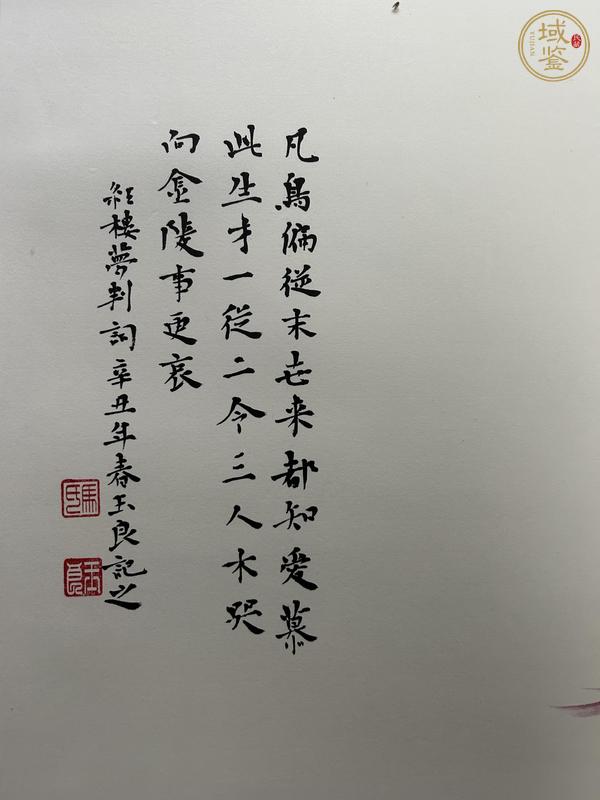 凡鳥偏從末世来都知愛慕
此生才一從二令三人木哭
向金陵事更哀
紅樓夢判詞辛丑年春玉良記之
馬氏
玉良
域鉴
YUJIAN